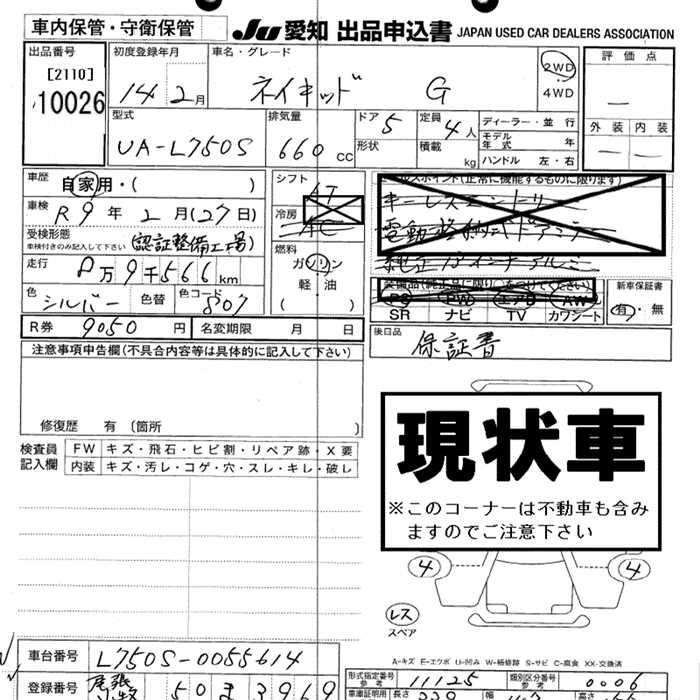 車内保管・守衛保管
JU 愛知 出品申込書 JAPAN USED CAR DEALERS ASSOCIATION
出品番号
[2110]
10026
初度登録年月
14 2月
車名・グレード
ネイキッド G
2WD
4WD
評価点
外装 内装
型式
UA-L750S
排気量
660 cc
ドア 5
形状
定員 4人
積載 kg
ディーラー・並行
モデル年式 年
ハンドル 左・右
車歴
自家用・( )
車検 R9年 2月(27日)
受検形態
車検付きのみ記入して下さい
(認証整備工場)
走行 8万9千566km
色 シルバー 色替 色コード 807
シフト
AT
冷房
AC
燃料
ガソリン
軽油
セールスポイント(正常に機能するものに限ります)
キーレスエントリー
電動格納式ドアミラー
純正アルミ
装備品(純正品に限り○をつけてください)
PS PW エアB AW
SR ナビ TV カワシート
新車保証書
有・無
R券 9050円 名変期限 月 日
後日品
保証書
注意事項申告欄(不具合内容等は具体的に記入して下さい)
修復歴 有 〔箇所 〕
検査員記入欄
FW キズ・飛石・ヒビ割・リペア跡・X要
内装 キズ・汚レ・コゲ・穴・スレ・キレ・破レ
現状車
※このコーナーは不動車も含みますのでご注意下さい
4 4
レス
スペア
A-キズ E-エクボ U-凹み W-補修跡 S-サビ C-腐食 XX-交換済
車台番号 L750S-0055614
登録番号 尾張小牧 50 ま 3969
形式指定番号 参考 11125
類別区分番号 参考 0006
車庫証明用 長さ 幅